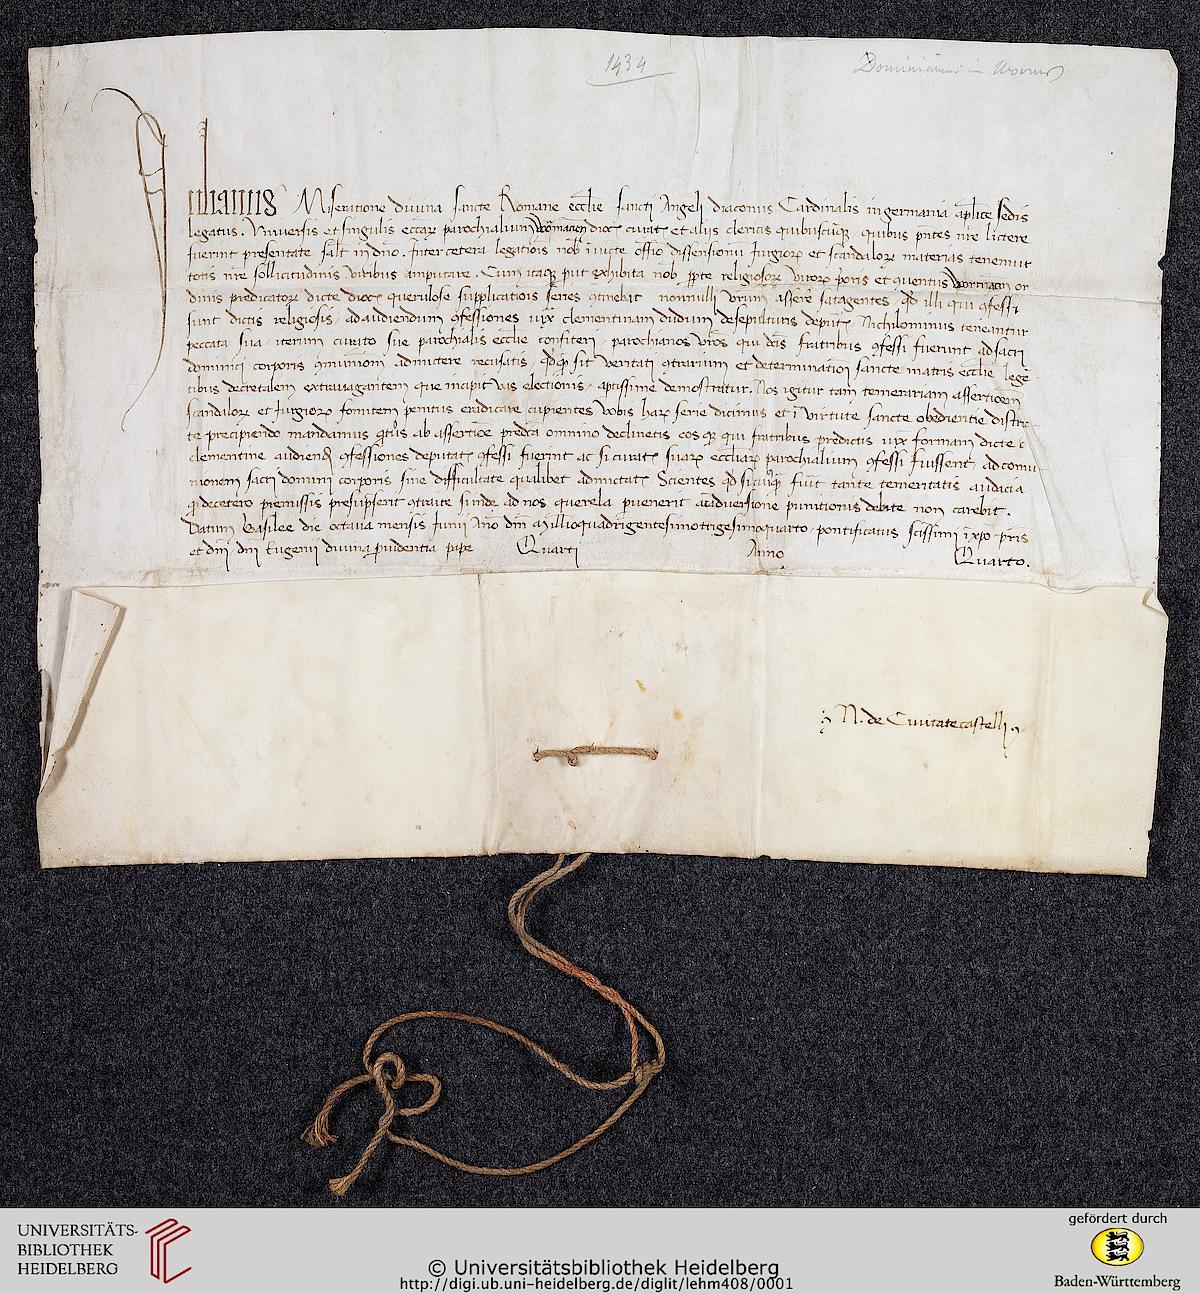 1434
Dominicani in Worms
Iulianus Miseratione divina sancte Romane eccl'ie sancti Angeli diaconus Cardinalis in germania ap'lice sedis
legatus. Universis et singulis eccar parochialium Wormacien dioc curat et alijs clericis quibuscumq quibus pntes nre lictere
fuerint presentate salt in dno. Inter cetera legationis nob iniucte officio dissensionum Iurgior et scandalor materias tenemur
totis nre sollicitudinis viribus amputare. Cum itaq put exhibita nob pte religiosor viror prioris et quentus Wormacien or
dinis predicator dicte dioc querulose supplicatiois series qtinebat nonnulli vrum assere satagentes qd illi qui qfessi
sunt dictis religiosis ad audiendum qfessiones iuxta clementinam dudum de sepulturis deput Nichilominus teneantur
peccata sua iterum curato sue parochialis ecclie confiteri parochianos vros qui dcis fratribus qfessi fuerunt ad sacri
dominici corporis qmunionem admictere recusatis qd q sit veritati qtrarium et determinationi sancte matris ecclie lege
tibus decretalem extravagantem que incipit vas electionis aptissime demostratur. Nos igitur tam temerariam assertioem
scandalor et Iurgior fomitem penitus eradicare cupientes vobis har serie dicimus et i virtute sancte obedientie distric
te precipiendo mandamus qtus ab assertioe predca omnino declinetis eos q qui fratribus predictis iuxta formam dicte c
clementine audiend qfessiones deputat qfessi fuerint ac si curat suar eccliar parochialium qfessi fuissent ad comu
nionem sacri domini corporis sine difficultate qualibet admictat Scientes qd si cuiq fuit tante temeritatis audacia
q decetero premissis presupserit qtraire si inde ad nos querela pvenerit aiadversione punitionis debite non carebit.
Datum Basilee die octava mensis Iunij Ano dni Millioquadrigentesimotrigesimoquarto pontificatus scissimi i xpo pris
et dni dni Eugenij divina pvidentia pape Quarti Anno Quarto.
N. de Civitatecastelli
UNIVERSITÄTS-
BIBLIOTHEK
HEIDELBERG
© Universitätsbibliothek Heidelberg
http://digi.ub.uni-heidelberg.de/diglit/lehm408/0001
gefördert durch
Baden-Württemberg